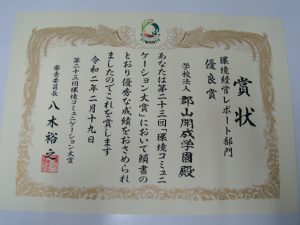 賞状
環境経営レポート部門
優良賞
学校法人 郡山開成学園殿
あなたは第二十三回「環境コミュニ
ケーション大賞」において頭書の
とおり優秀な成績をおさめられ
ましたのでこれを賞します
令和二年二月十九日
第二十三回環境コミュニケーション大賞
審査委員長 八木裕之